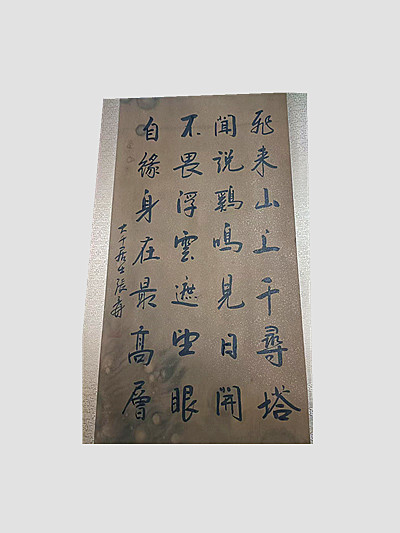 飛来山上千尋塔
聞説鷄鳴見日開
不畏浮雲遮望眼
自緣身在最高層
大千居士張爰